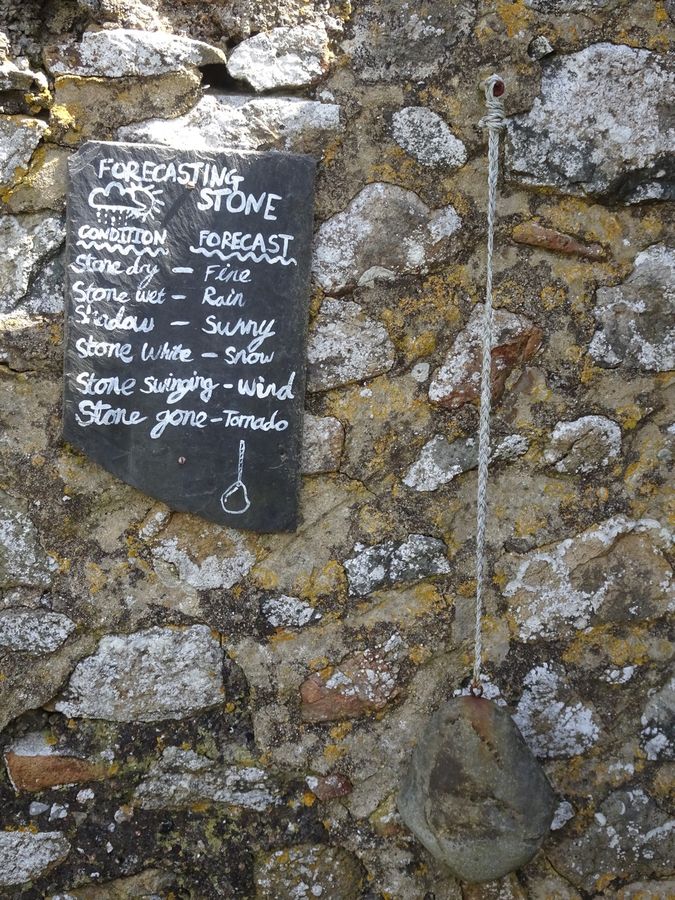 FORECASTING
STONE
CONDITION FORECAST
Stone dry – Fine
Stone wet – Rain
Shadow – Sunny
Stone White – Snow
Stone Swinging – Wind
Stone gone – Tornado